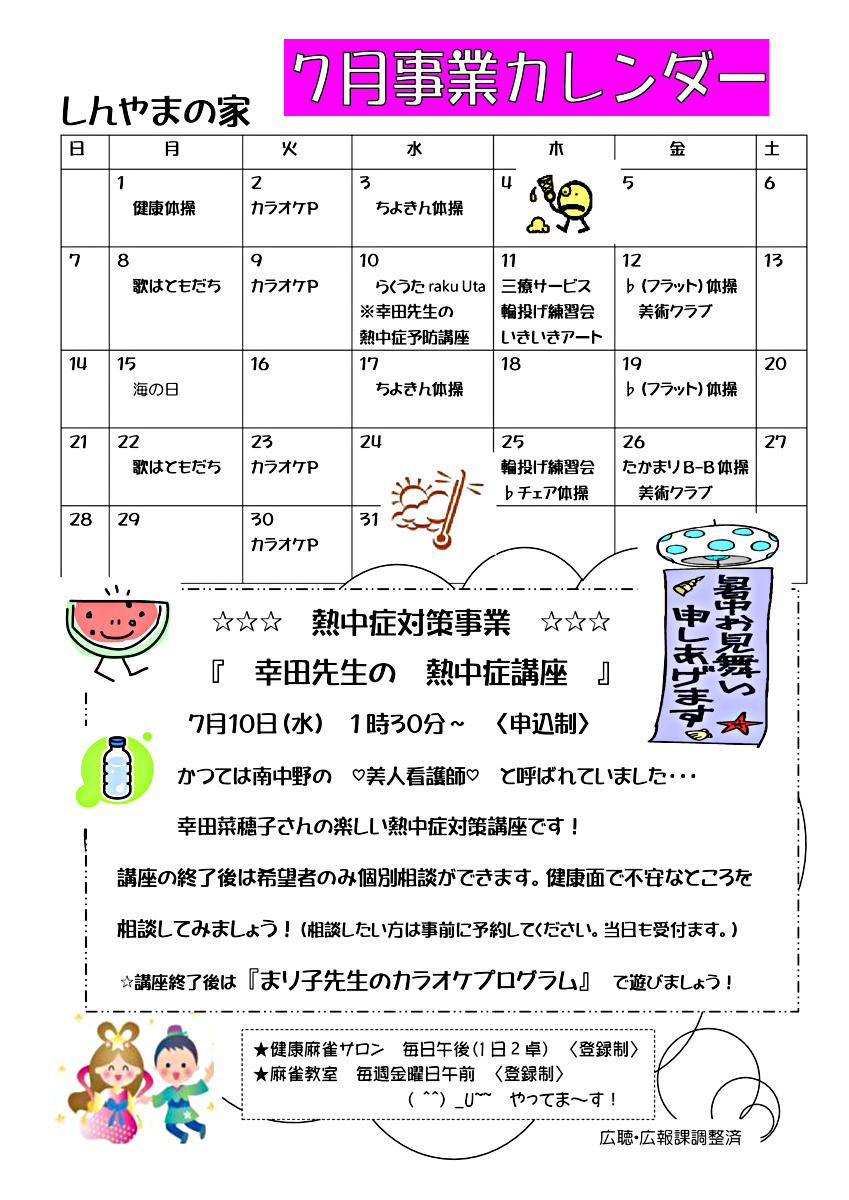 7月事業カレンダー
しんやまの家
日 月 火 水 木 金 土
1 2 3 4 5 6
健康体操 カラオケP ちよきん体操
7 8 9 10 11 12 13
歌はともだち カラオケP らくうた raku Uta 三療サービス ♭(フラット)体操
※幸田先生の 輪投げ練習会 美術クラブ
熱中症予防講座 いきいきアート
14 15 16 17 18 19 20
海の日 ちよきん体操 ♭(フラット)体操
21 22 23 24 25 26 27
歌はともだち カラオケP 輪投げ練習会 たかまりB-B体操
♭チェア体操 美術クラブ
28 29 30 31
カラオケP
暑中お見舞い
申しあげます
☆☆☆ 熱中症対策事業 ☆☆☆
『 幸田先生の 熱中症講座 』
7月10日(水) 1時30分~ 〈申込制〉
かつては南中野の ♡美人看護師♡ と呼ばれていました・・・
幸田菜穂子さんの楽しい熱中症対策講座です!
講座の終了後は希望者のみ個別相談ができます。健康面で不安なところを
相談してみましょう!(相談したい方は事前に予約してください。当日も受付ます。)
☆講座終了後は『まり子先生のカラオケプログラム』 で遊びましょう!
★健康麻雀サロン 毎日午後(1日2卓) 〈登録制〉
★麻雀教室 毎週金曜日午前 〈登録制〉
( ^^) _U~~ やってま~す!
広聴・広報課調整済